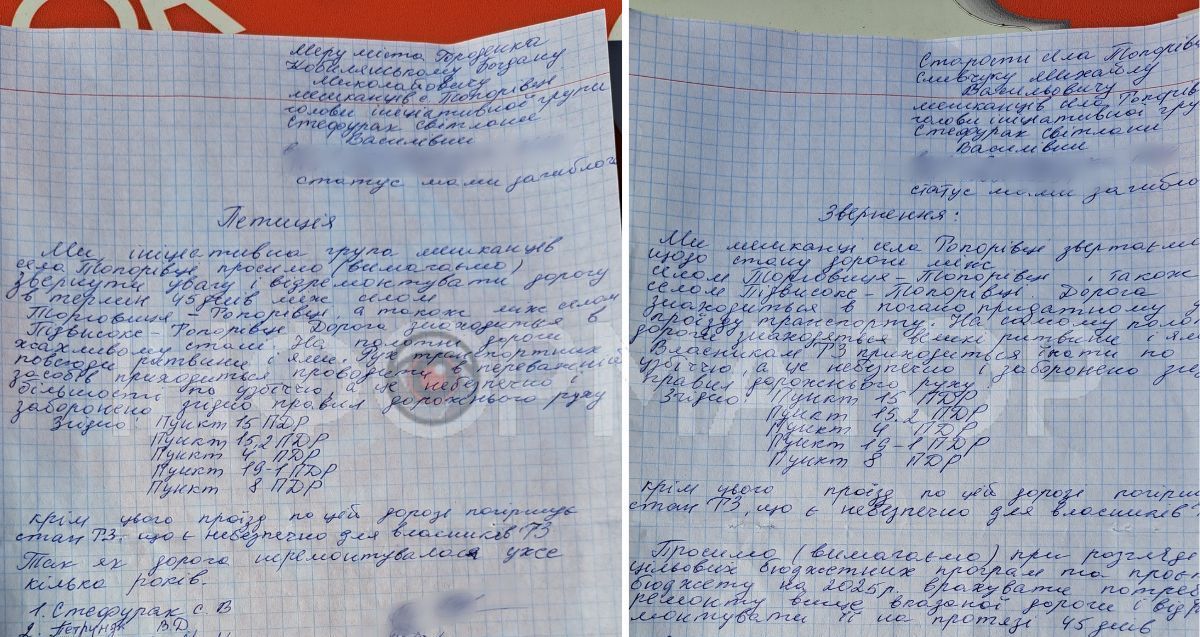 Меру міста Городенка
Кобилянському Богдану
Миколайовичу
мешканців с. Топорівці
голови ініціативної групи
Стефурак Світлане
Василівни
статус мами загиблог
Петиція
Ми ініціативна група мешканців
села Топорівці просимо (вимагаємо)
звернути увагу і відремонтувати дорогу
в термін 45 днів між селом
Торговиця - Топорівці, а також між селом
Підвисоке - Топорівці. Дорога знаходиться в
жахливому стані. На полотні дороги
повсюди ритвини і ями. Рух транспортних
засобів приходиться проводити в переважній
більшості по узбіччю а це небезпечно і
заборонено згідно правил дорожнього руху
Згідно: Пункт 15 ПДР
Пункт 15,2 ПДР
Пункт 4 ПДР
Пункт 19-1 ПДР
Пункт 8 ПДР
крім цього проїзд по цій дорозі погіршує
стан ТЗ, що є небезпечно для власників ТЗ
Так як дорога неремонтувалася уже
кілька років.
1. Стефурак С. В
2. Петруняк В.Д.
Старости села Топорівц
Слившуку Михайлу
Васильовичу
мешканців села Топорів
голови ініціативної гру
Стефурак Світлани
Василівни
статус мами загибло
Звернення:
Ми мешканці села Топорівці звертаємо
щодо стану дороги між
селом Торговиця - Топорівці, також
селом Підвисоке - Топорівці. Дорога
знаходиться в погано придатному
проїзду транспорту. На самому поло
дороги знаходяться великі ритвини і ям
Власникам ТЗ приходиться їхати по
узбіччю, а це небезпечно і заборонено зг
правил дорожнього руху
Згідно: Пункт 15 ПДР
Пункт 15.2 ПДР
Пункт 4 ПДР
Пункт 19-1 ПДР
Пункт 8 ПДР
крім цього проїзд по цій дорозі погірш
стан ТЗ, що є небезпечно для власників
Просимо (вимагаємо) при розгляді
цільових бюджетних програм та проє
бюджету на 2025р. врахувати потреб
ремонту вище вказаної дороги і відр
монтувати її на протязі 45 днів